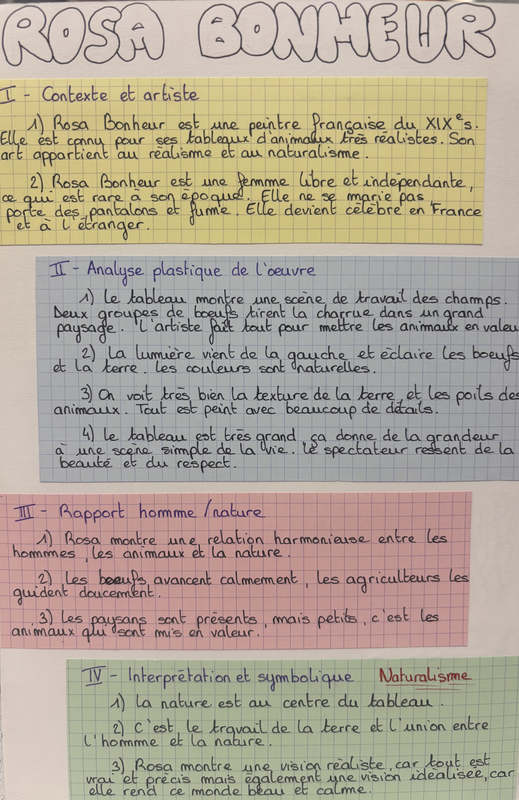 ROSA BONHEUR
I - Contexte et artiste
1) Rosa Bonheur est une peintre française du XIXe s.
Elle est connu pour ses tableaux d'animaux très réalistes. Son
art appartient au réalisme et au naturalisme.
2) Rosa Bonheur est une femme libre et indépendante,
ce qui est rare à son époque. Elle ne se marie pas,
porte des pantalons et fume. Elle devient célèbre en France
et à l'étranger.
II - Analyse plastique de l'oeuvre
1) Le tableau montre une scène de travail des champs.
Deux groupes de boeufs tirent la charrue dans un grand
paysage. L'artiste fait tout pour mettre les animaux en valeu
2) La lumière vient de la gauche et éclaire les boeufs
et la terre. Les couleurs sont naturelles.
3) On voit très bien la texture de la terre, et les poils des
animaux. Tout est peint avec beaucoup de détails.
4) Le tableau est très grand, ça donne de la grandeur
à une scène simple de la vie. Le spectateur ressent de la
beauté et du respect.
III - Rapport homme/nature
1) Rosa montre une relation harmonieuse entre les
hommes, les animaux et la nature.
2) Les boeufs avancent calmement, les agriculteurs les
guident doucement.
3) Les paysans sont présents, mais petits, c'est les
animaux qui sont mis en valeur.
IV - Interprétation et symbolique Naturalisme
1) La nature est au centre du tableau.
2) C'est le travail de la terre et l'union entre
l'homme et la nature.
3) Rosa montre une vision réaliste, car tout est
vrai et précis mais également une vision idéalisée, car
elle rend ce monde beau et calme.